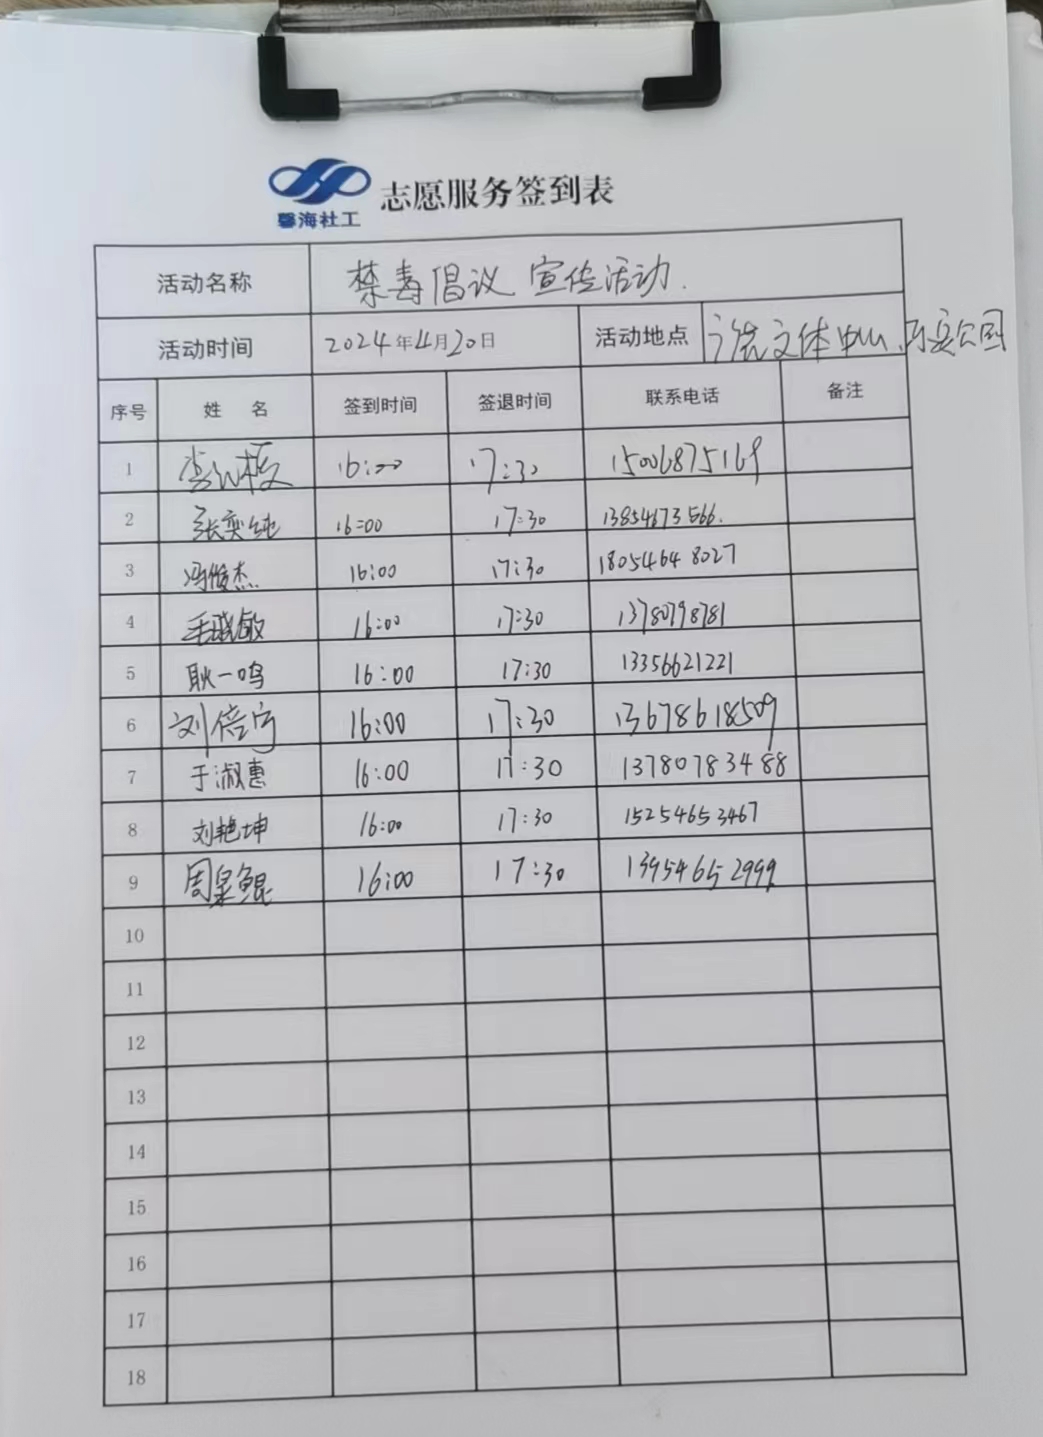 馨海社工 志愿服务签到表
活动名称 禁毒倡议宣传活动.
活动时间 2024年4月20日 活动地点 文体中心、乐安公园
序号 姓 名 签到时间 签退时间 联系电话 备注
1 16:00 17:30 15006875169
2 张奕纯 16:00 17:30 13854673566.
3 冯俊杰 16:00 17:30 18054648027
4 毛晓敏 16:00 17:30 13780798781
5 耿一鸣 16:00 17:30 13356621221
6 刘倍宁 16:00 17:30 13678618509
7 于淑惠 16:00 17:30 13780783488
8 刘艳坤 16:00 17:30 15254653467
9 周昊鲲 16:00 17:30 13954652999
10
11
12
13
14
15
16
17
18